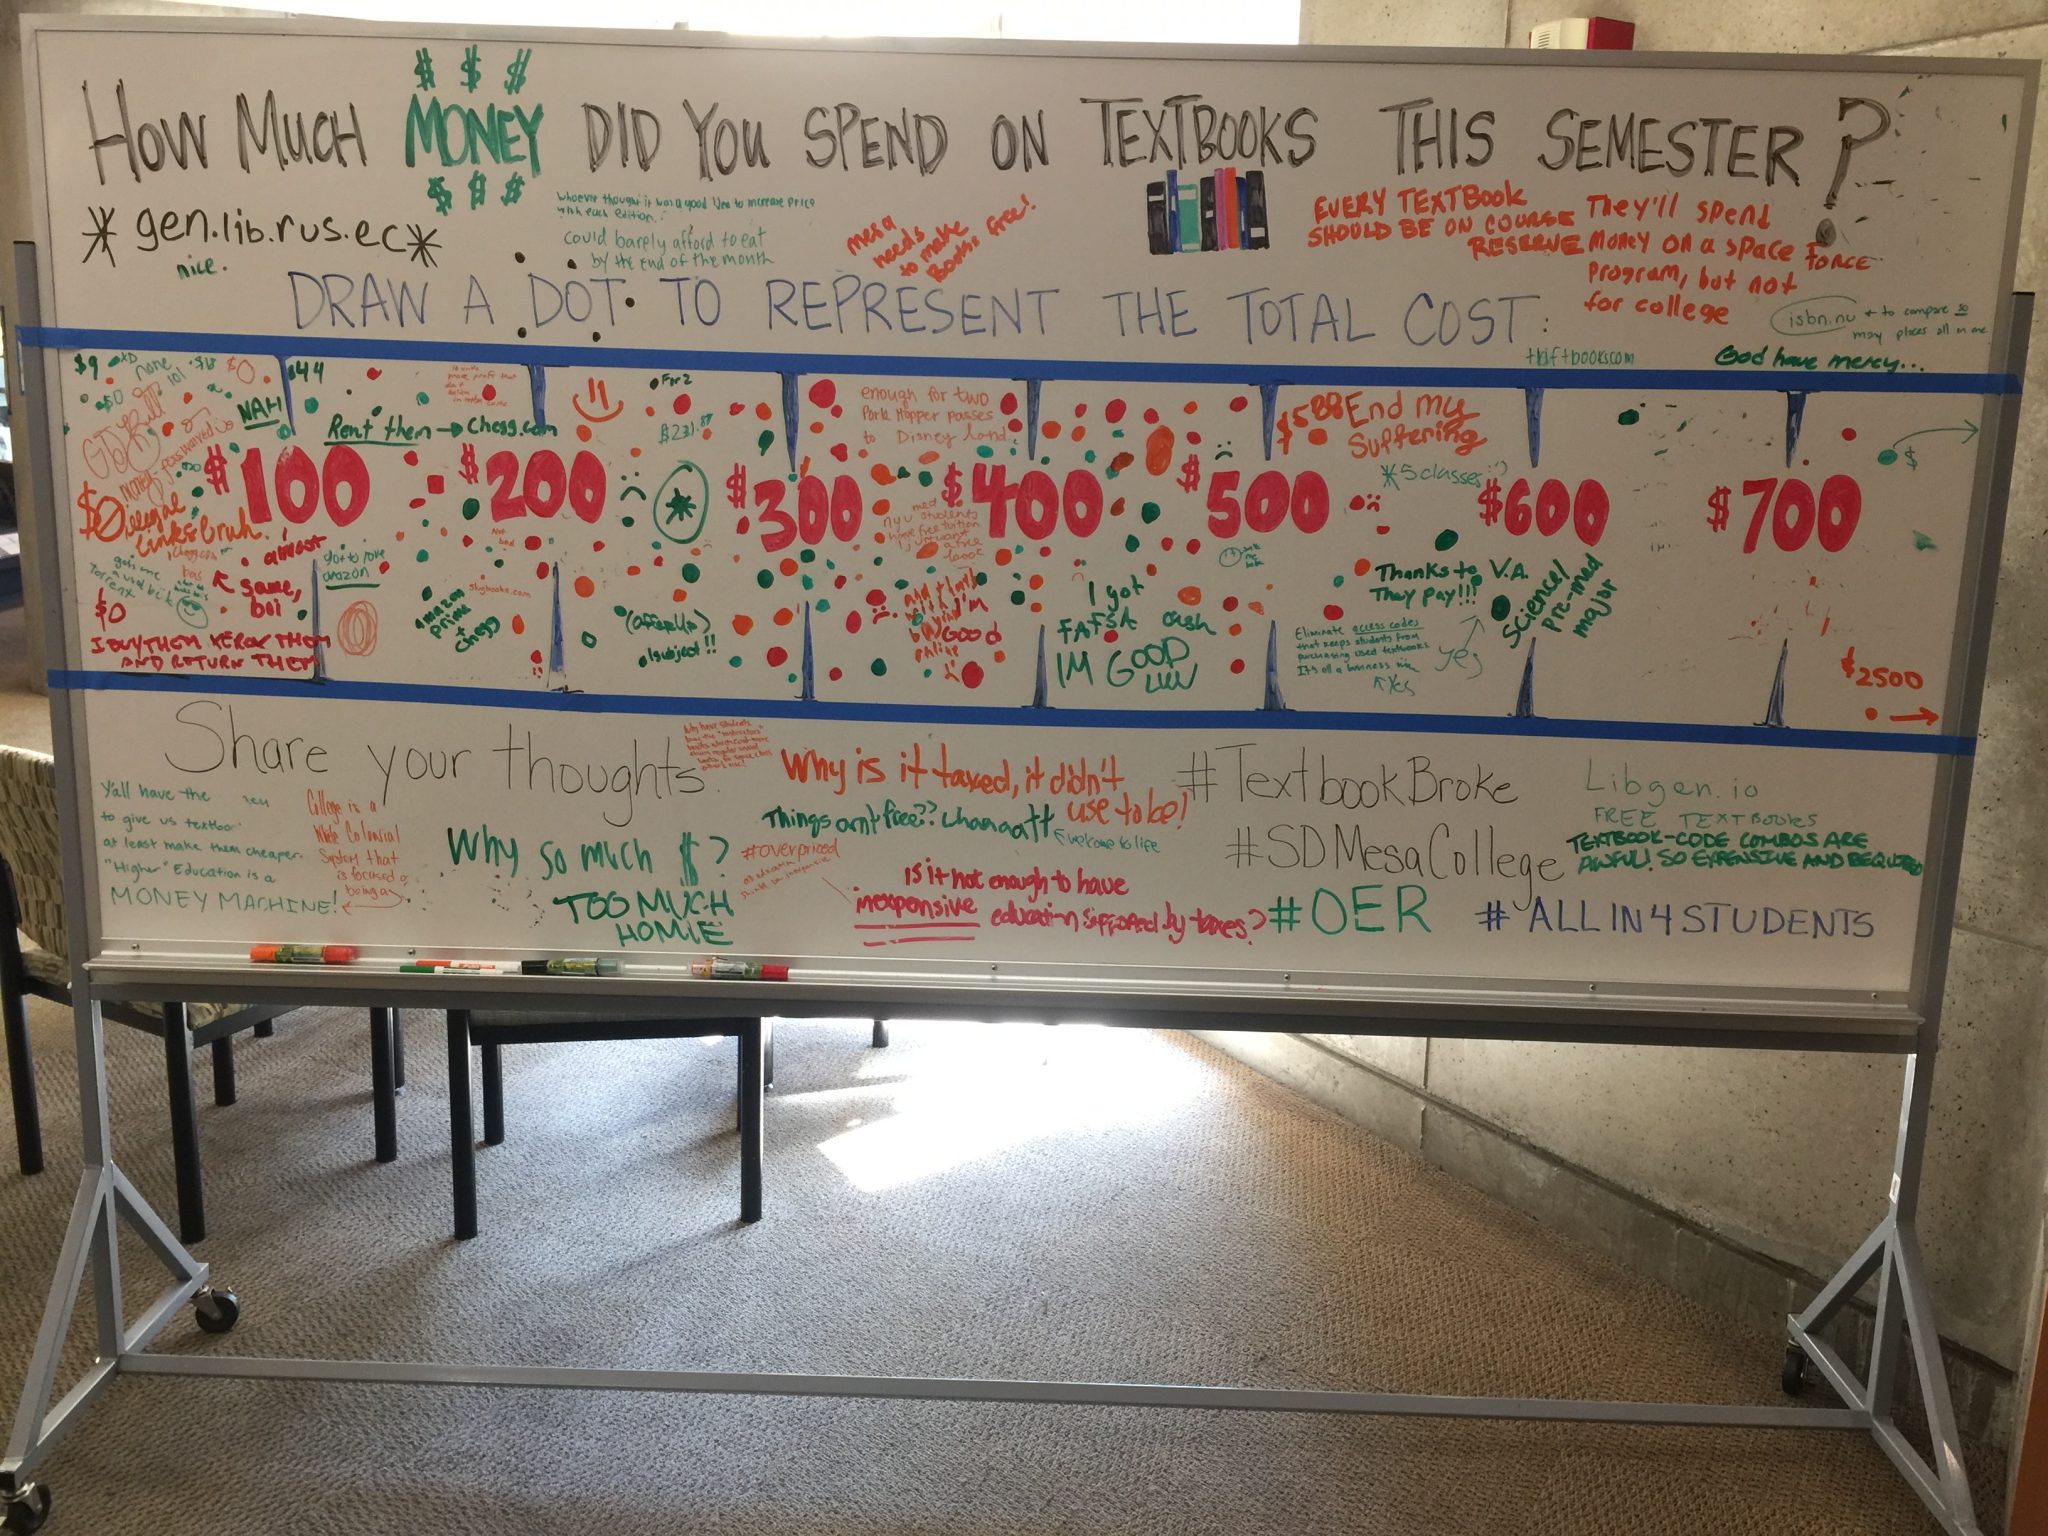 $ $ $
HOW MUCH MONEY DID YOU SPEND ON TEXTBOOKS THIS SEMESTER?
$ $ $
* gen.lib.rus.ec *
nice.
Whoever thought it was a good idea to increase price
with each edition.
could barely afford to eat
by the end of the month
mesa
needs
to make
Books free!
EVERY TEXTBOOK
SHOULD BE ON COURSE
RESERVE
They'll spend
money on a space FORCE
program, but not
for college
isbn.nu
to compare so
many places all in one
DRAW A DOT TO REPRESENT THE TOTAL COST:
thriftbooks.com
God have mercy...
$9
XD
none
lol
$0
$0
$44
NAH
Rent them → Chegg.com
For 2
$231.87
enough for two
Park Hopper passes
to Disney land
$588 End my
suffering
*5 classes
$
$100
$200
*
$300
$400
$500
$600
$700
$0 illegal
links bruh.
almost
same,
boi
$0
I BUY THEM XEROX THEM
AND RETURN THEM
got to love
amazon
Not
bad
Amazon
Prime
+
chegg
slugbooks.com
(offerUp)
1 subject!!
med
students
free tuition
I just want
a free
book
I'm
GOOD
online
I got
FAFSA cash
IM GOOD
LUV
Thanks to V.A.
They pay!!!
Science/
pre-med
major
Eliminate access codes
that keeps students from
purchasing used textbooks
It's all a business
yes
Yes
$2500
Share your thoughts.
Why have students
buy the "instructors"
Why is it taxed, it didn't
use to be!
Things arnt free?? Whaaaatt
welcome to life
#TextbookBroke
#SDMesaCollege
#OER
#ALLIN4STUDENTS
Libgen.io
FREE TEXTBOOKS
TEXTBOOK-CODE COMBOS ARE
AWFUL! SO EXPENSIVE AND REQUIRED
Y'all have the
to give us
at least make them cheaper.
"Higher" Education is a
MONEY MACHINE!
College is a
White Colonial
System that
is focused
being a
Why so much $?
TOO MUCH
HOMIE
#overpriced
Is it not enough to have
inexpensive education supported by taxes?